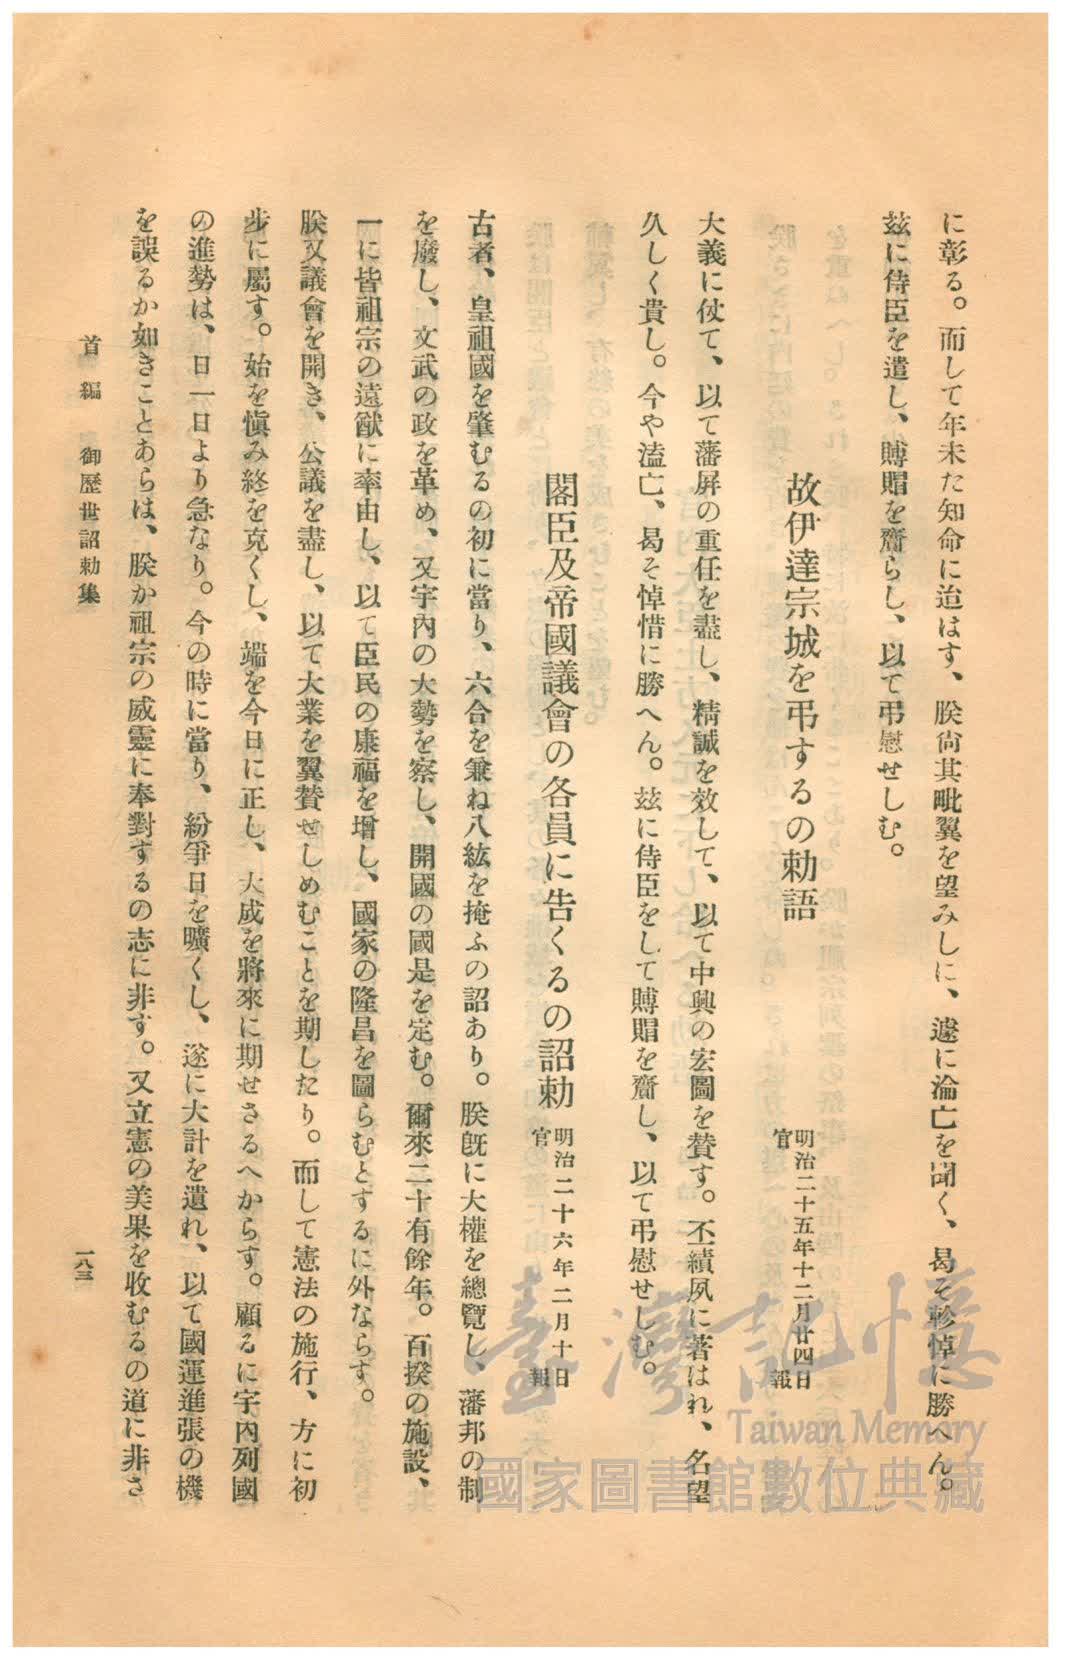 に彰る。而して年未た知命に迨はす、朕尙其毗翼を望みしに、遽に淪亡を聞く、曷そ軫悼に勝へん。
玆に侍臣を遣し、賻賵を齎らし、以て弔慰せしむ。
故伊達宗城を弔するの勅語
明治二十五年十二月廿四日
官報
大義に仗て、以て藩屏の重任を盡し、精誠を效して、以て中興の宏圖を賛す。丕績夙に著はれ、名望
久しく貴し。今や溘亡、曷そ悼惜に勝へん。玆に侍臣をして賻賵を齎し、以て弔慰せしむ。
閣臣及帝國議會の各員に吿くるの詔勅
明治二十六年二月十日
官報
古者、皇祖國を肇むるの初に當り、六合を兼ね八紘を掩ふの詔あり。朕旣に大權を總覽し、藩邦の制
を廢し、文武の政を革め、又宇內の大勢を察し、開國の國是を定む。爾來二十有餘年。百揆の施設、
一に皆祖宗の遠猷に率由し、以て臣民の康福を增し、國家の隆昌を圖らむとするに外ならす。
朕又議會を開き、公議を盡し、以て大業を翼賛せしめむことを期したり。而して憲法の施行、方に初
步に屬す。始を愼み終を克くし、端を今日に正し、大成を將來に期せさるへからす。顧るに宇內列國
の進勢は、日一日より急なり。今の時に當り、紛爭日を曠くし、遂に大計を遺れ、以て國運進張の機
を誤るか如きことあらは、朕か祖宗の威靈に奉對するの志に非す。又立憲の美果を收むるの道に非さ
首編　御歷世詔勅集
一八三
臺灣記憶
Taiwan Memory
國家圖書館數位典藏